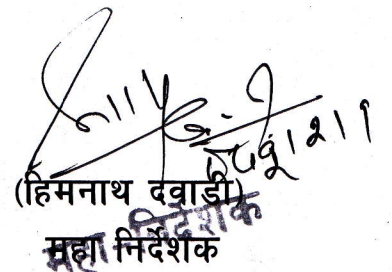 (हिमनाथ दवाडी)
महा निर्देशक
महा निर्देशक